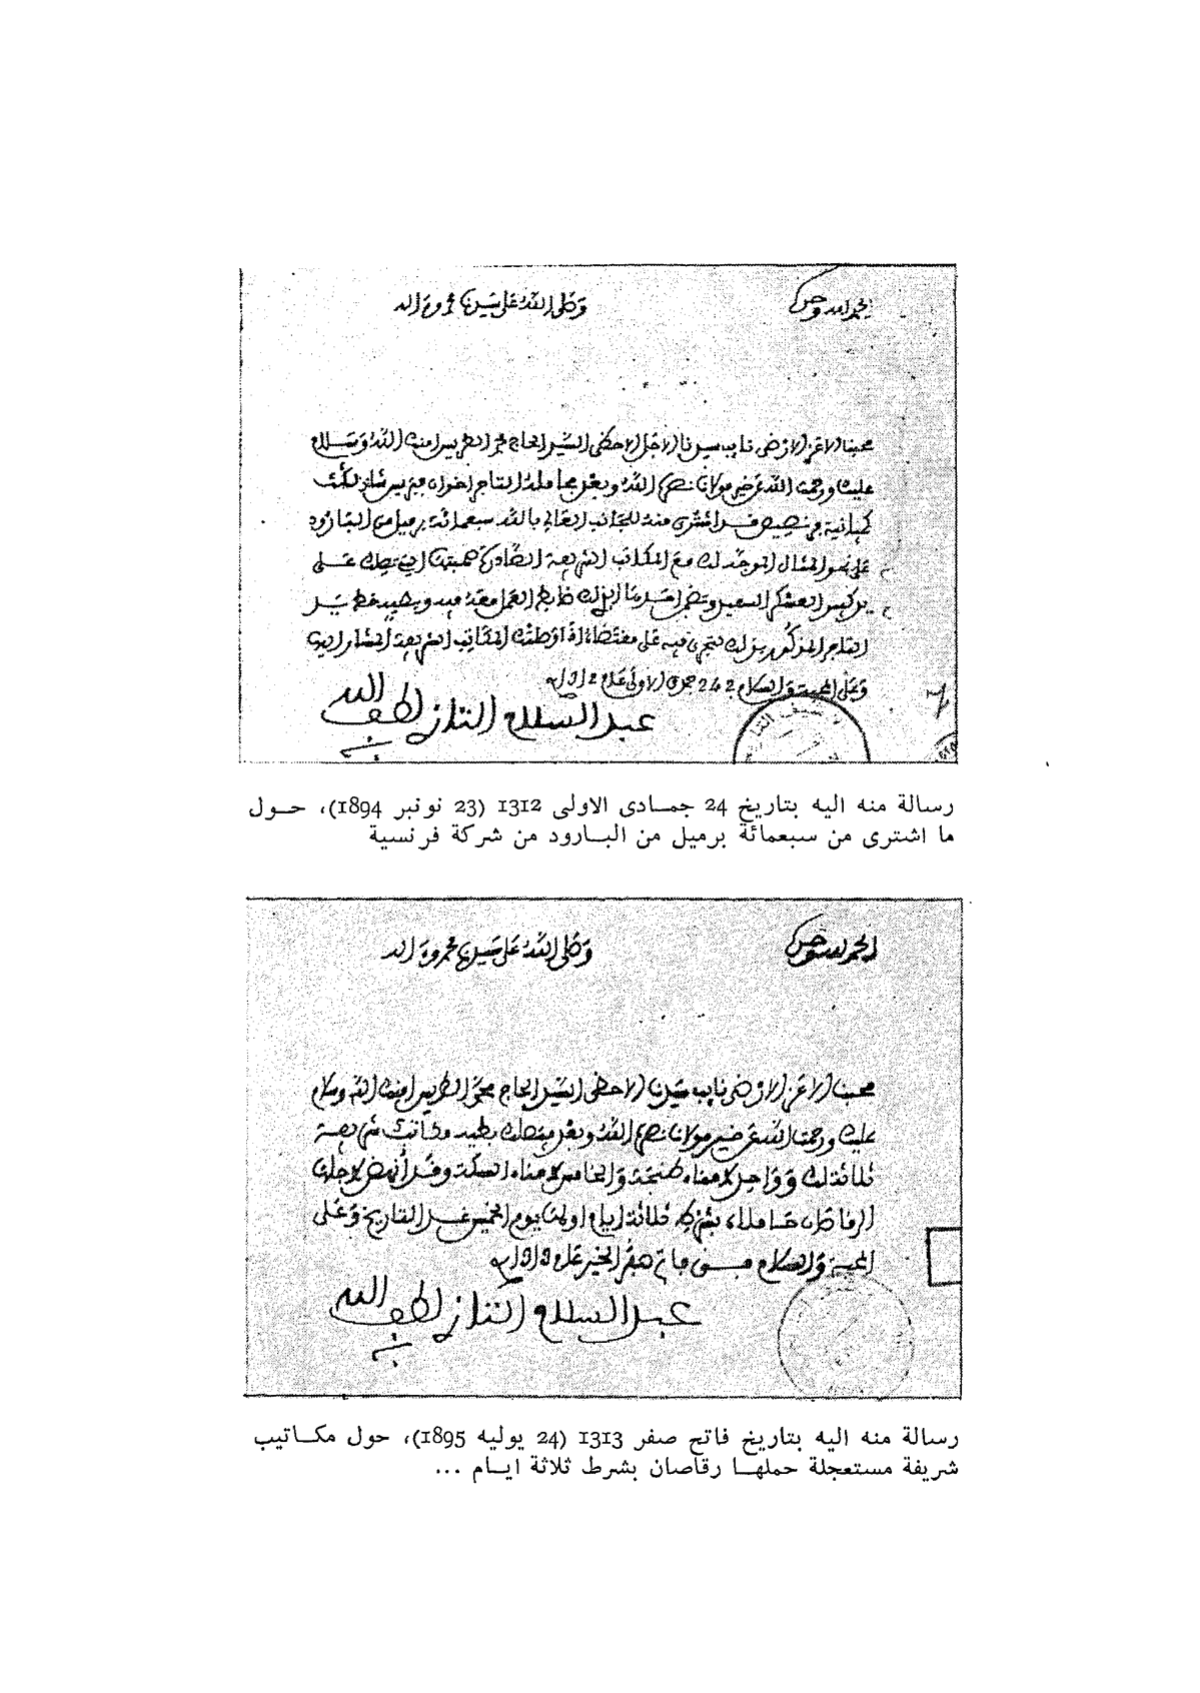 الحمد لله وحده
وصلى الله على سيدنا محمد وءاله
محبنا الاعز الارضى نايب سيدنا الاجل الاحظى السيد الحاج محمد الطريس امنك الله وسلام
عليك ورحمت الله عن خير مولانا نصره الله وبعد
قد اشترى منه للجانب العالي بالله سبعمائة برميل من البارود
على نحو المثال الموجه لك مع المكاتب الشريفة الصادرة
التاجر المذكور بذلك لتجري فيه على مقتضاه اذا وصلتك المكاتب الشريفة المشار اليها
وعلى المحبة والسلام 24 جمدى الاولى عام 1312
عبد السلام التازي لطف الله به
رسالة منه اليه بتاريخ 24 جمادى الاولى 1312 (23 نونبر 1894)، حول
ما اشترى من سبعمائة برميل من البارود من شركة فرنسية
الحمد لله وحده
وصلى الله على سيدنا محمد وءاله
محبنا الاعز الارضى نايب سيدنا الاحظى السيد الحاج محمد الطريس امنك الله وسلام
عليك ورحمت الله عن خير مولانا نصره الله وبعد يصلك بطيه مكاتب شريفة
ثلاثة لك وواحد لامناء طنجة والخامس لامناء السكة وقد أنهض لاجلها
الرقاصان حاملاه بشرط ثلاثة ايام اولها يوم الخميس غد التاريخ وعلى
المحبة والسلام في فاتح صفر الخير عام 1313
عبد السلام التازي لطف الله به
رسالة منه اليه بتاريخ فاتح صفر 1313 (24 يوليه 1895)، حول مكاتيب
شريفة مستعجلة حملها رقاصان بشرط ثلاثة ايام ...